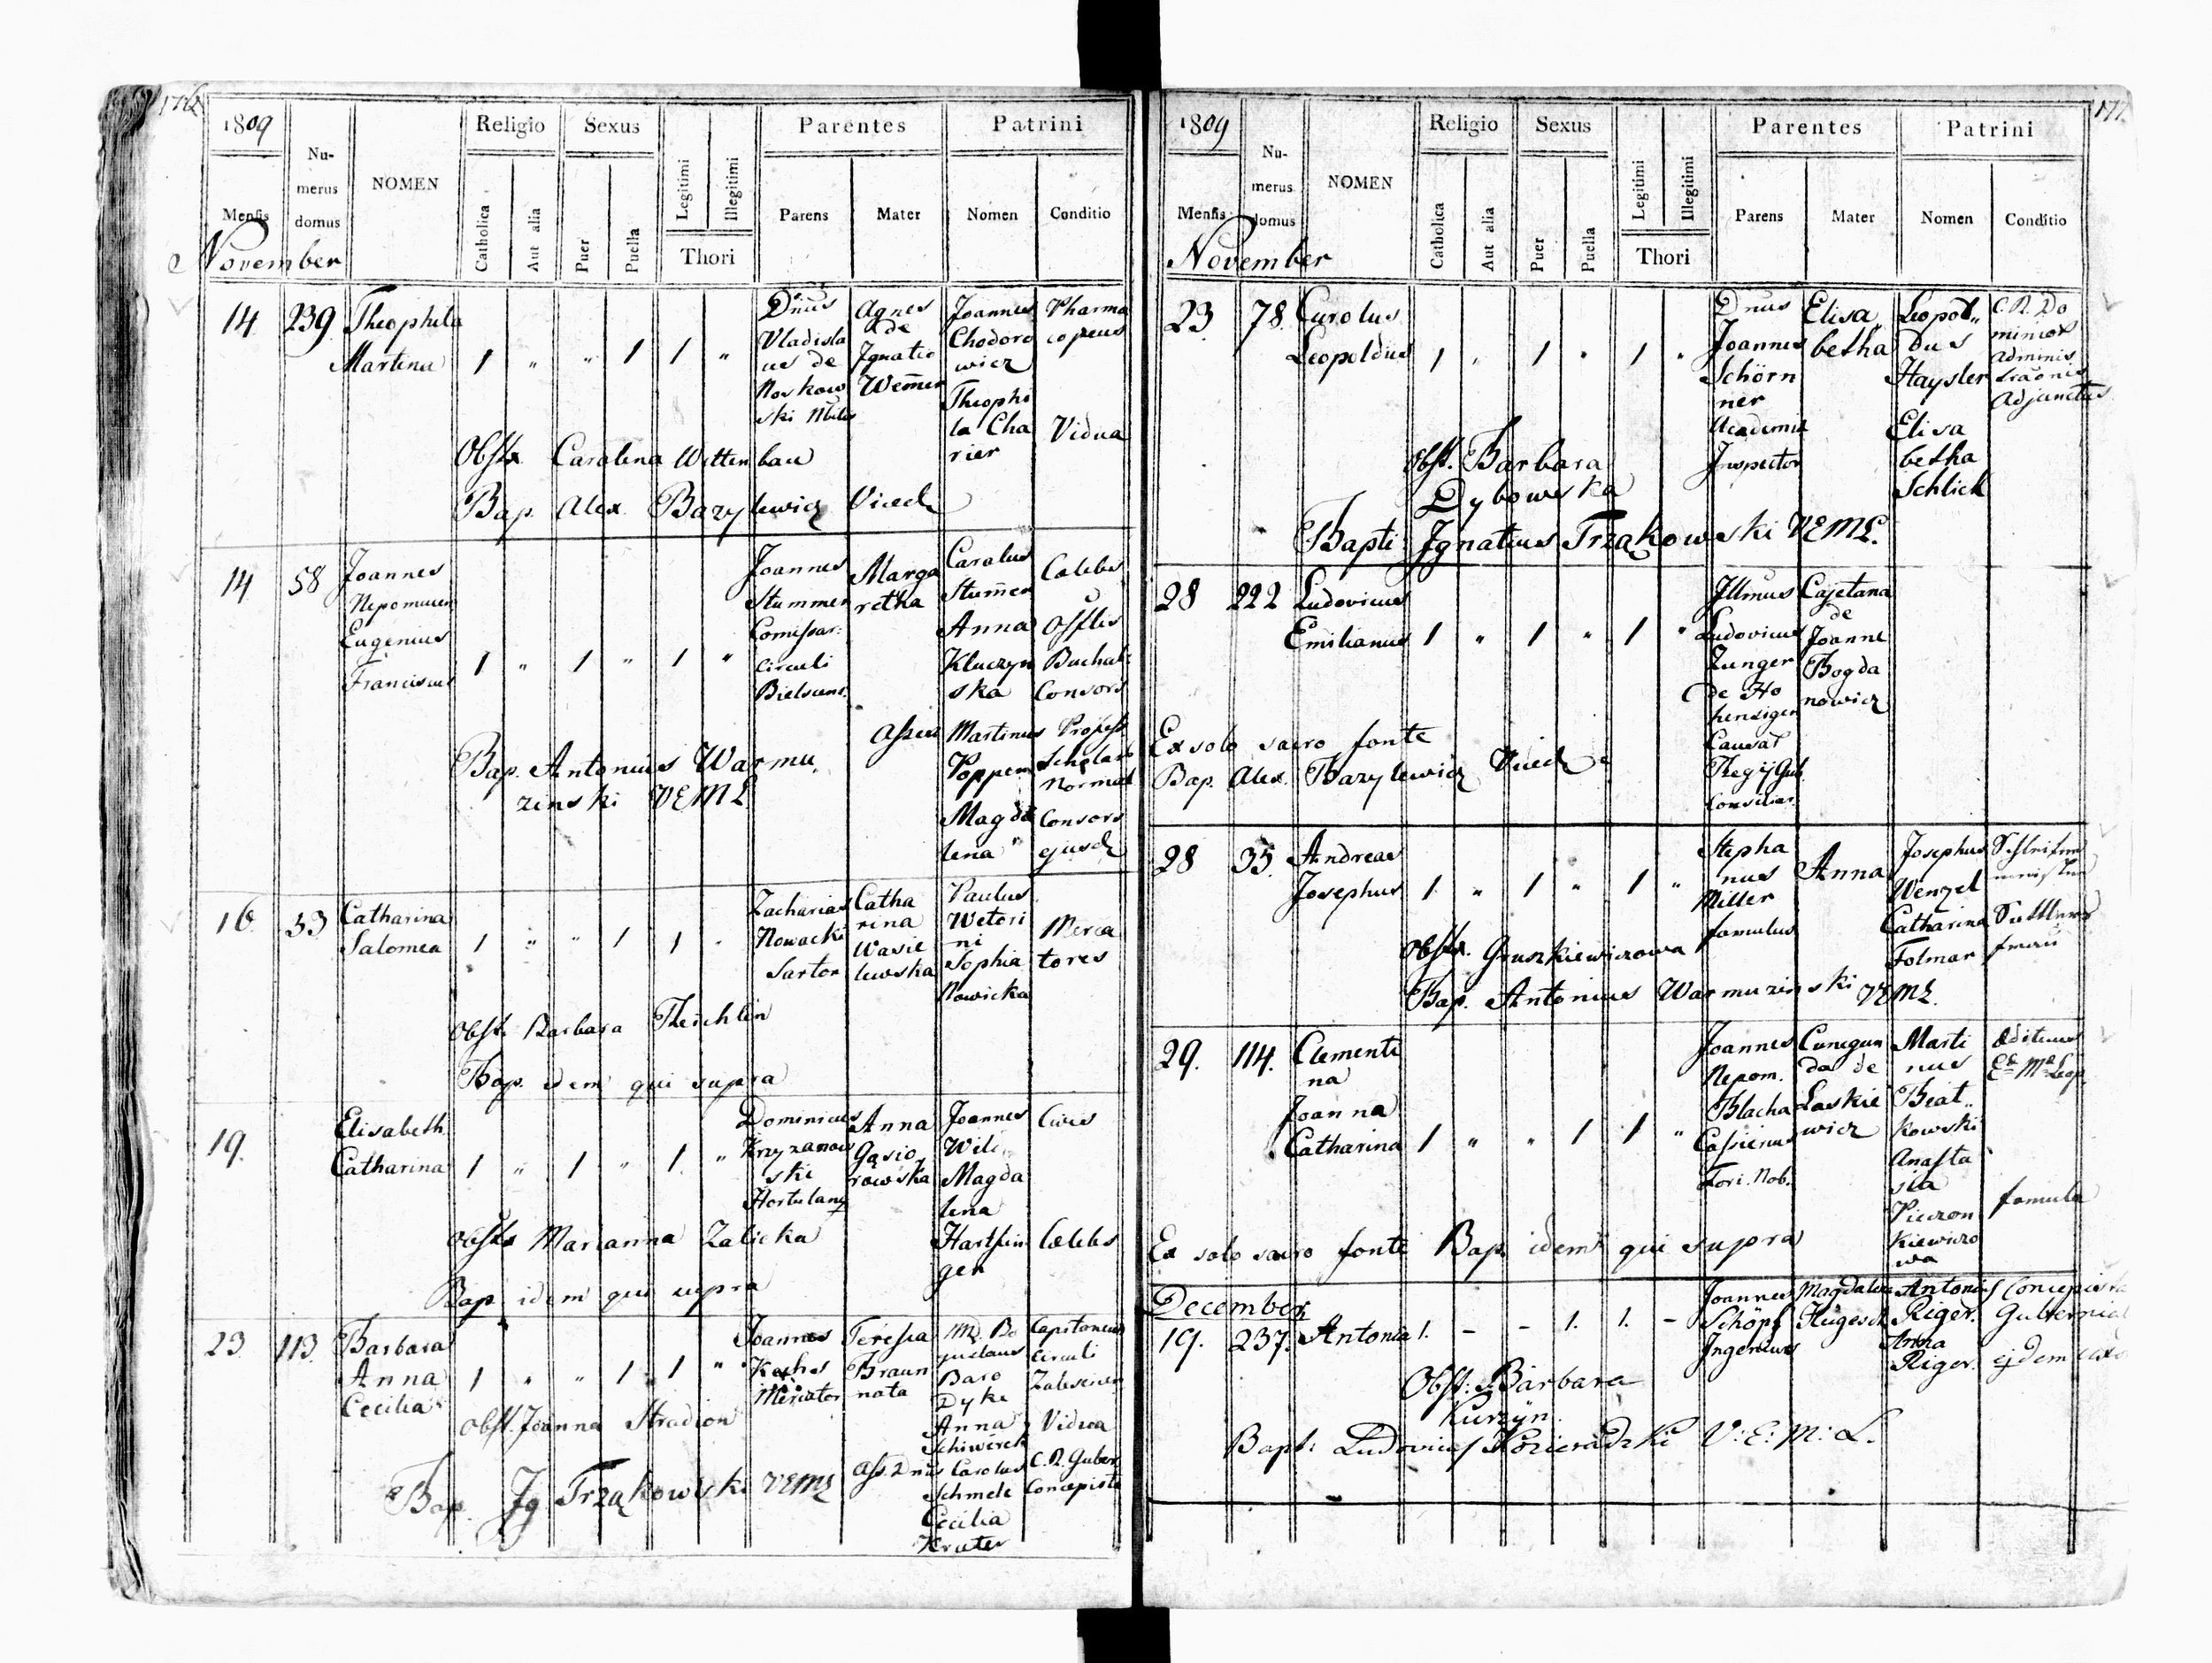 1809
Numerus domus
NOMEN
Religio
Sexus
Legitimi
Illegitimi
Thori
Parentes
Patrini
Mensis
Catholica
Aut alia
Puer
Puella
Parens
Mater
Nomen
Conditio
November
14 239 Theophila Martina 1 " " 1 1 "
Dnus Vladislaus de Noskowski Nbilis
Agnes de Ignatio Wem̄er
Joannes Chodorowicz
Pharmacopeus
Theophila Charier
Vidua
Obstx Carolina Wittenbau
Bap. Alex. Bazylewicz Viced
14 58 Joannes Nepomucen Eugenius Franciscus 1 " 1 " 1 "
Joannes Stummer Comissar: circuli
Margaretha
Carolus Stum̄er
Cœlebs
Anna Kluczynska
Offlis Buchal: Consors
Assen Martinus
Profess Scholar Normal
Magdalena
Consors ejusd
Bap. Antonius Warmuzinski VEML
16 53 Catharina Salomea 1 " " 1 1 "
Zacharias Nowacki Sartor
Catharina Wasilewska
Paulus Wetorini
Sophia Nowicka
Mercatores
Obst. Barbara
Bap. idem qui supra
19. Elisabeth Catharina 1 " 1 " 1. "
Dominicus Krzyzanowski
Anna Gąsiorowska
Joannes
Civis
Magdalena Hartfinger
Cœlebs
Obstx Marianna Zalicka
Bap idem qui supra
23 113. Barbara Anna Cecilia 1 " " 1 1 "
Joannes Mercator
Teressia Braun nata
Baro Dyke
Capitaneus circuli
Anna Schiwerek
Vidua
Obst. Joanna Stradion
Ass. Dnus Carolus Schmelz
C.R. Guber Concepista
Cecilia Kruter
Bap. Jg Trząkowski VEML
177
1809
Numerus domus
NOMEN
Religio
Sexus
Legitimi
Illegitimi
Thori
Parentes
Patrini
Mensis
Catholica
Aut alia
Puer
Puella
Parens
Mater
Nomen
Conditio
November
23 78. Carolus Leopoldus 1 " 1 " 1 "
Dnus Joannes Schörnner Academia Inspector
Elisabetha
Leopoldus Haysler
C.R. Adjunctus
Elisabetha Schlick
Obst. Barbara Dybowska
Bapti: Ignatius Trząkowski VEML.
28 222 Ludovicus Emilianus 1 " 1 " 1 "
Illmus Ludovicus
Cajetana de Joanne Bogdanowicz
Ex solo sacro fonte
Bap. Alex. Bazylewicz Viced
28 35. Andreas Josephus 1. " 1 " 1 "
Stephanus Miller famulus
Anna
Josephus Wenzel
Catharina Folmar
Obstx. Gruszkiewiczowa
Bap. Antonius Warmuzinski VEML.
29. 114. Clementina Joanna Catharina 1 " " 1 1 "
Joannes Nepom. Blacha Fori. Nob.
Cunegunda de Laskiewicz
Martinus Beatkowski
Anastasia
famula
Ex solo sacro fonte Bap. idem qui supra
December
19. 237. Antonia 1. - - 1. 1. -
Joannes Schöpf
Magdalena
Antonius Riger.
Concepista Gubernial
Anna Riger.
Obst: Barbara
Bapt: Ludovicus V: E: M: L.